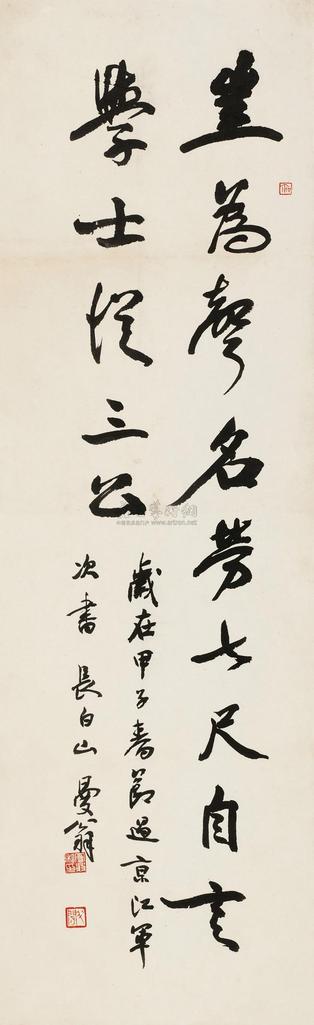 豈為聲名勞七尺自言
學士從三公
歲在甲子春節過京江軍
次書 長白山 曼翁
www.artron.net